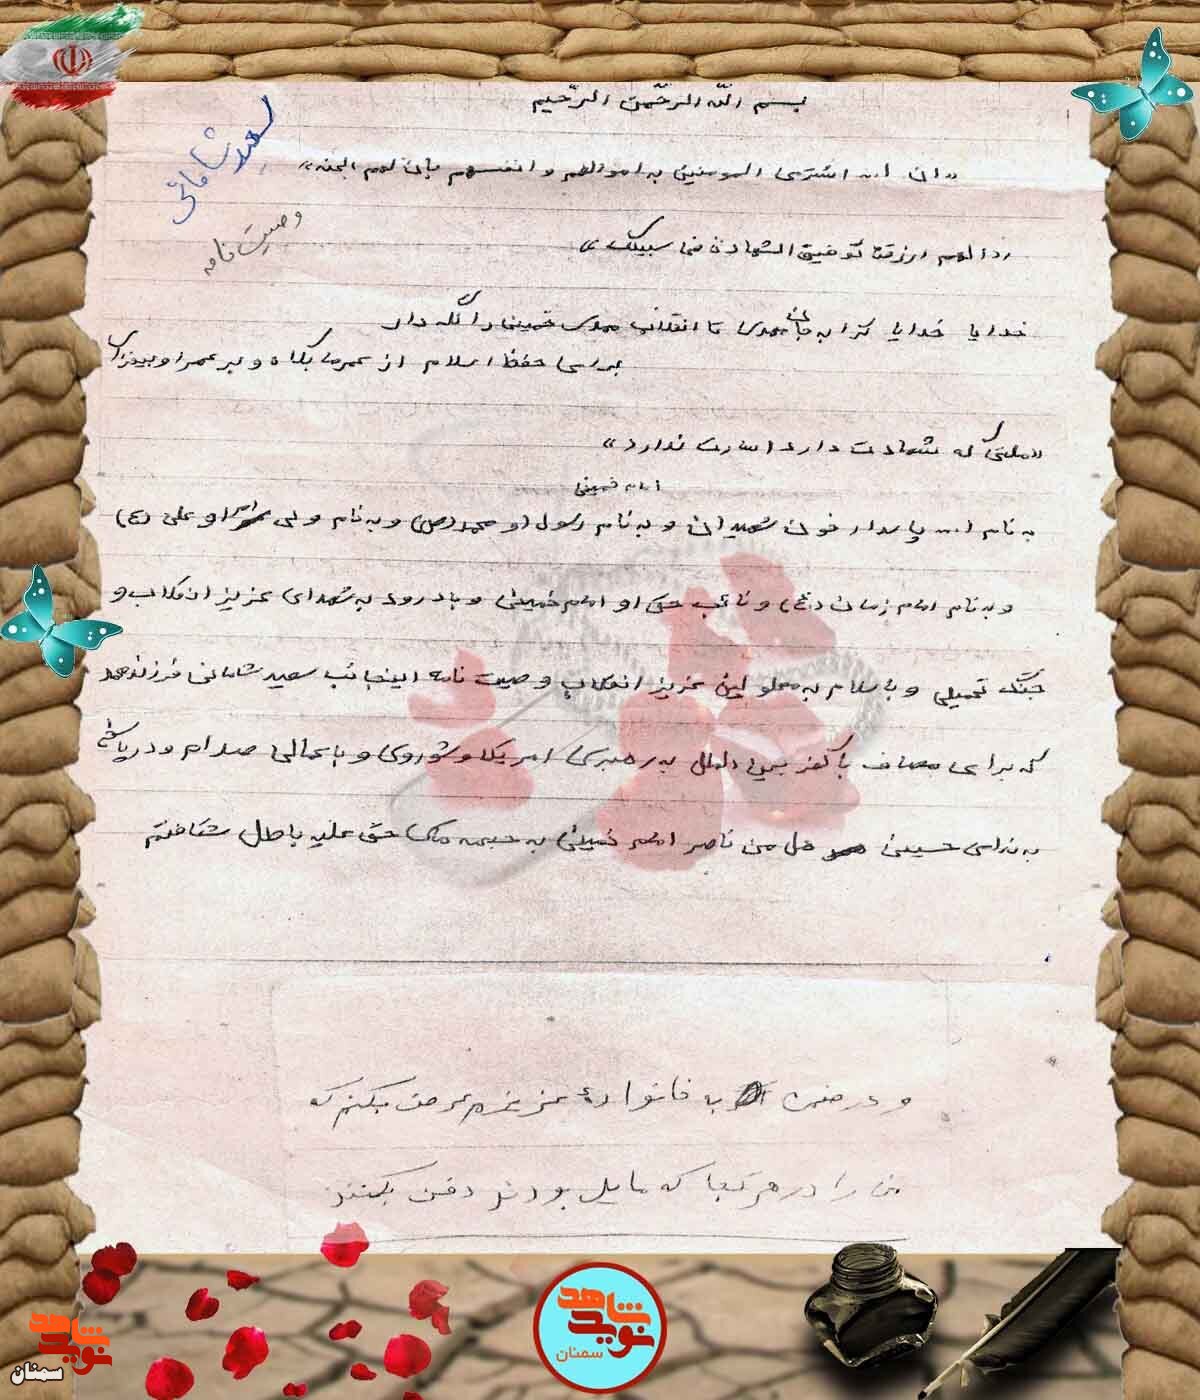 بسم الله الرحمن الرحیم
سعید شاهانی
وصیت نامه
«ان ا... اشتری المومنین به اموالهم و انفسهم بان لهم الجنه»
«الهم ارزقنا توفیق الشهادت فی سبیلک»
خدایا خدایا ترا به جان مهدی تا انقلاب مهدی خمینی را نگه دار
برای حفظ اسلام از عمر ما بکاه و بر عمر او بیفزای
«ملتی که شهادت دارد اسارت ندارد»
امام خمینی
به نام ا... پاسدار خون شهیدان و به نام رسول او محمد (ص) و به نام ولی او علی (ع)
و به نام امام زمان (عج) و نائب حق او امام خمینی و با درود به شهدای عزیز انقلاب و
جنگ تحمیلی و با سلام به معلولین عزیز انقلاب وصیت نامه اینجانب سعید شاهانی فرزند
که برای مصاف با کفر بین الملل به رهبری امریکا و شوروی و با عمالی صدام و در پاسخ
به ندای حسینی هل من ناصر امام خمینی به جبهه های حق علیه باطل شتافتم
و در ضمن به خانواده عزیزم عرض میکنم که
من را در هر کجا که مایل بودند دفن بکنند
نوید شاهد
سمنان
نوید شاهد
سمنان